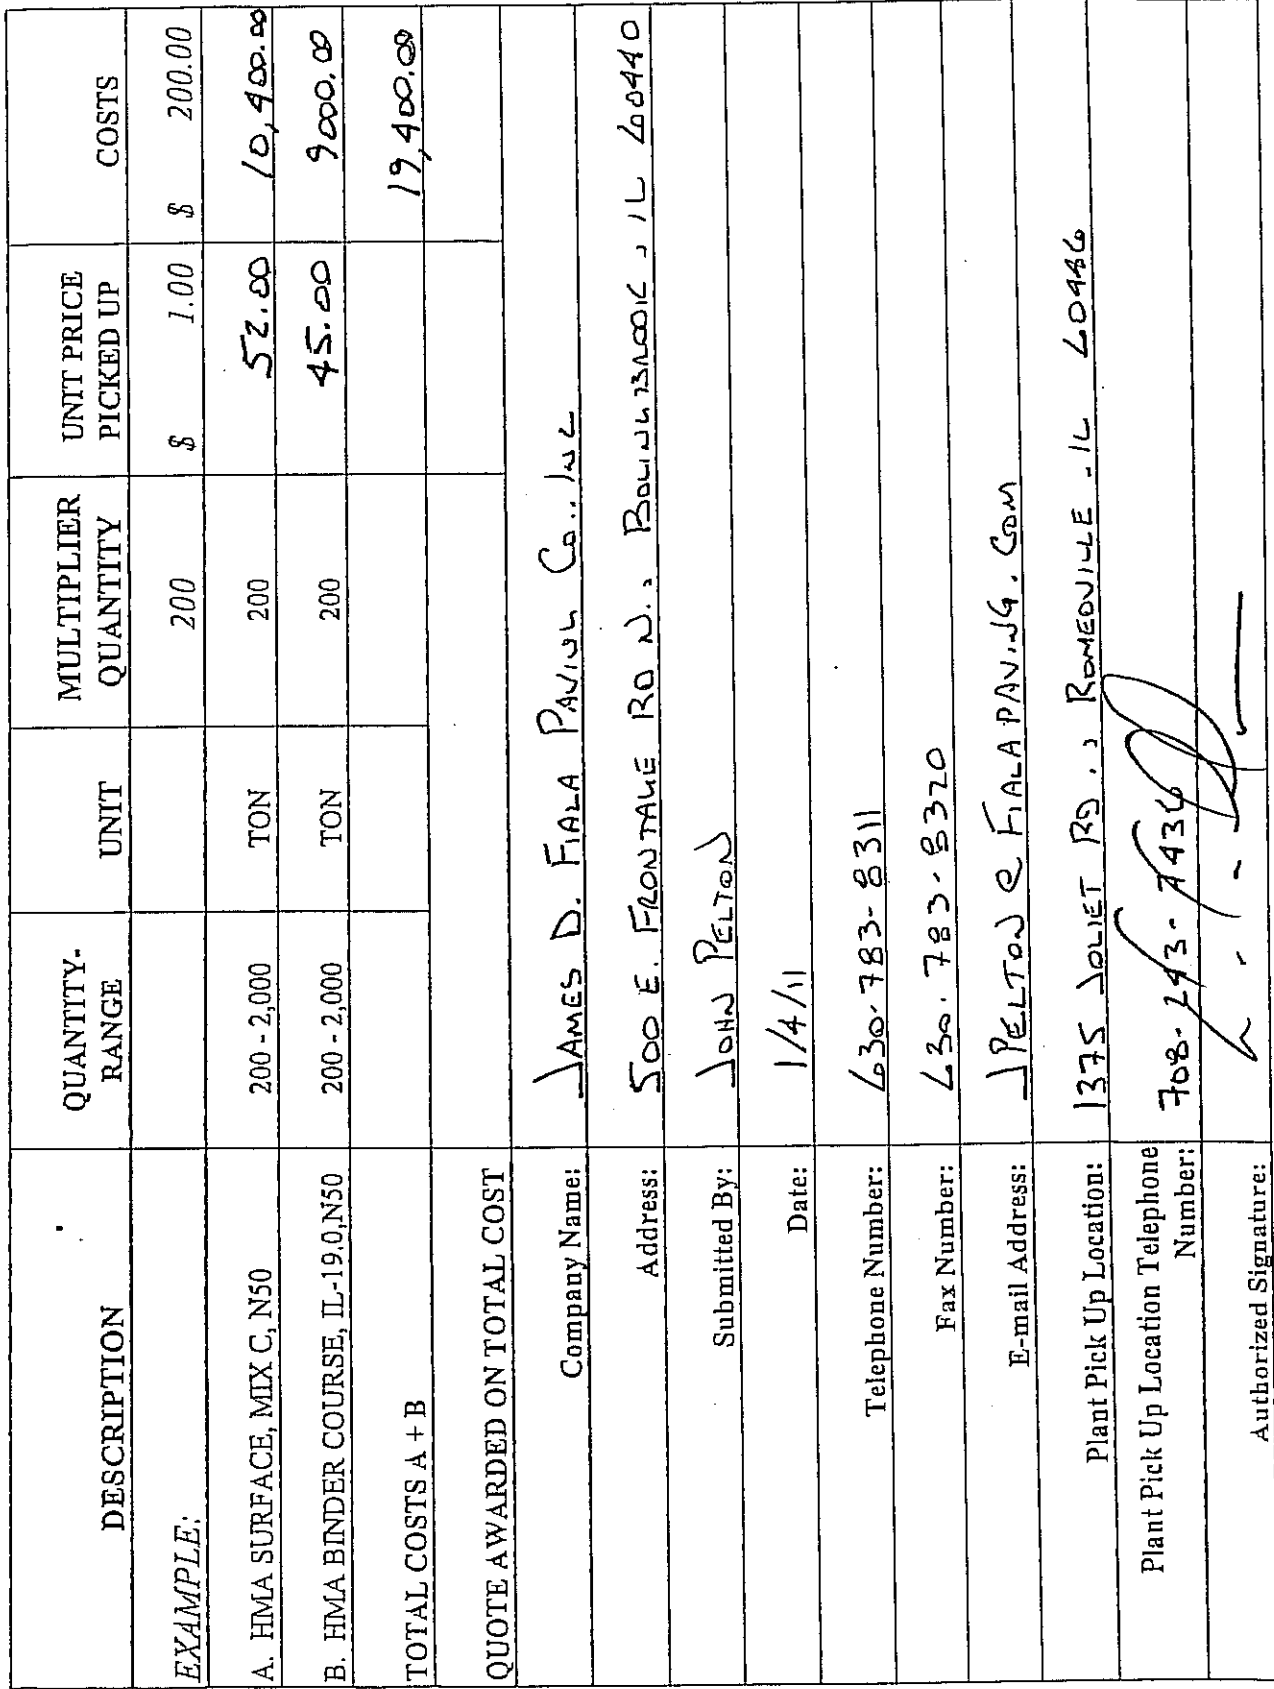 DESCRIPTION QUANTITY-RANGE UNIT MULTIPLIER QUANTITY UNIT PRICE PICKED UP COSTS
EXAMPLE: 200 $ 1.00 $ 200.00
A. HMA SURFACE, MIX C, N50 200 - 2,000 TON 200 52.00 10,400.00
B. HMA BINDER COURSE, IL-19.0,N50 200 - 2,000 TON 200 45.00 9000.00
TOTAL COSTS A + B 19,400.00
QUOTE AWARDED ON TOTAL COST
Company Name: JAMES D. FIALA PAVING CO., INC
Address: 500 E. FRONTAGE RD N., BOLINGBROOK, IL 60440
Submitted By: JOHN PELTON
Date: 1/4/11
Telephone Number: 630-783-8311
Fax Number: 630-783-8320
E-mail Address: JPELTON@FIALAPAVING.COM
Plant Pick Up Location: 1375 JOLIET RD., ROMEOVILLE, IL 60446
Plant Pick Up Location Telephone
Number: 708-243-
Authorized Signature: